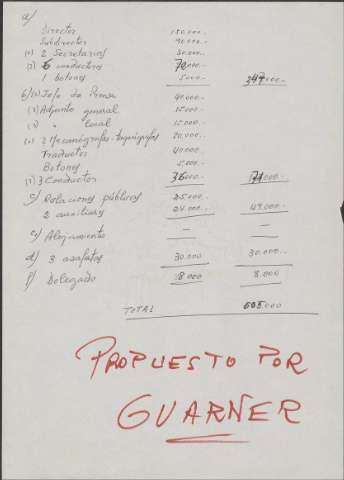 a)
Director 150.000.-
Subdirector 90.000.-
(2) 2 Secretarios 30.000.-
(2) 6 conductores 72.000.-
1 botones 5.000.- 347.000.-
b) (2) Jefe de Prensa 40.000.-
(2) Adjunto general 15.000.-
(2) " local 15.000.-
(2) 2 Mecanógrafos-taquígrafos 20.000.-
Traductor 40.000.-
Botones 5.000.-
(1) 3 Conductor 36.000 171.000.-
c) Relaciones públicas 25.000
2 auxiliares 24.000.- 49.000.-
c) Alojamiento — —
d) 3 azafatas 30.000 30.000.-
f) Delegado 8.000 8.000
TOTAL 605.000
PROPUESTO POR
GUARNER